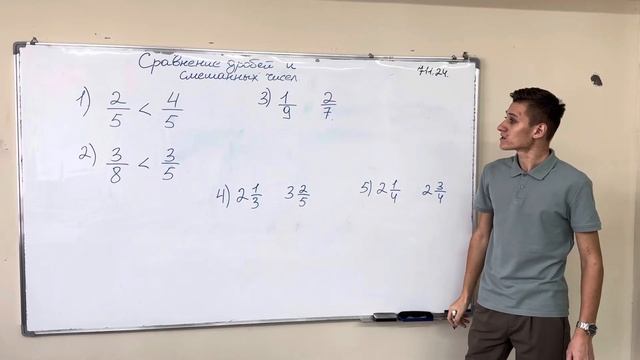 Сравнение дробей и
смешанных чисел
7.11.24.
1) 2/5 < 4/5
3) 1/9 2/7
2) 3/8 < 3/5
4) 2 1/3 3 2/5
5) 2 1/4 2 3/4